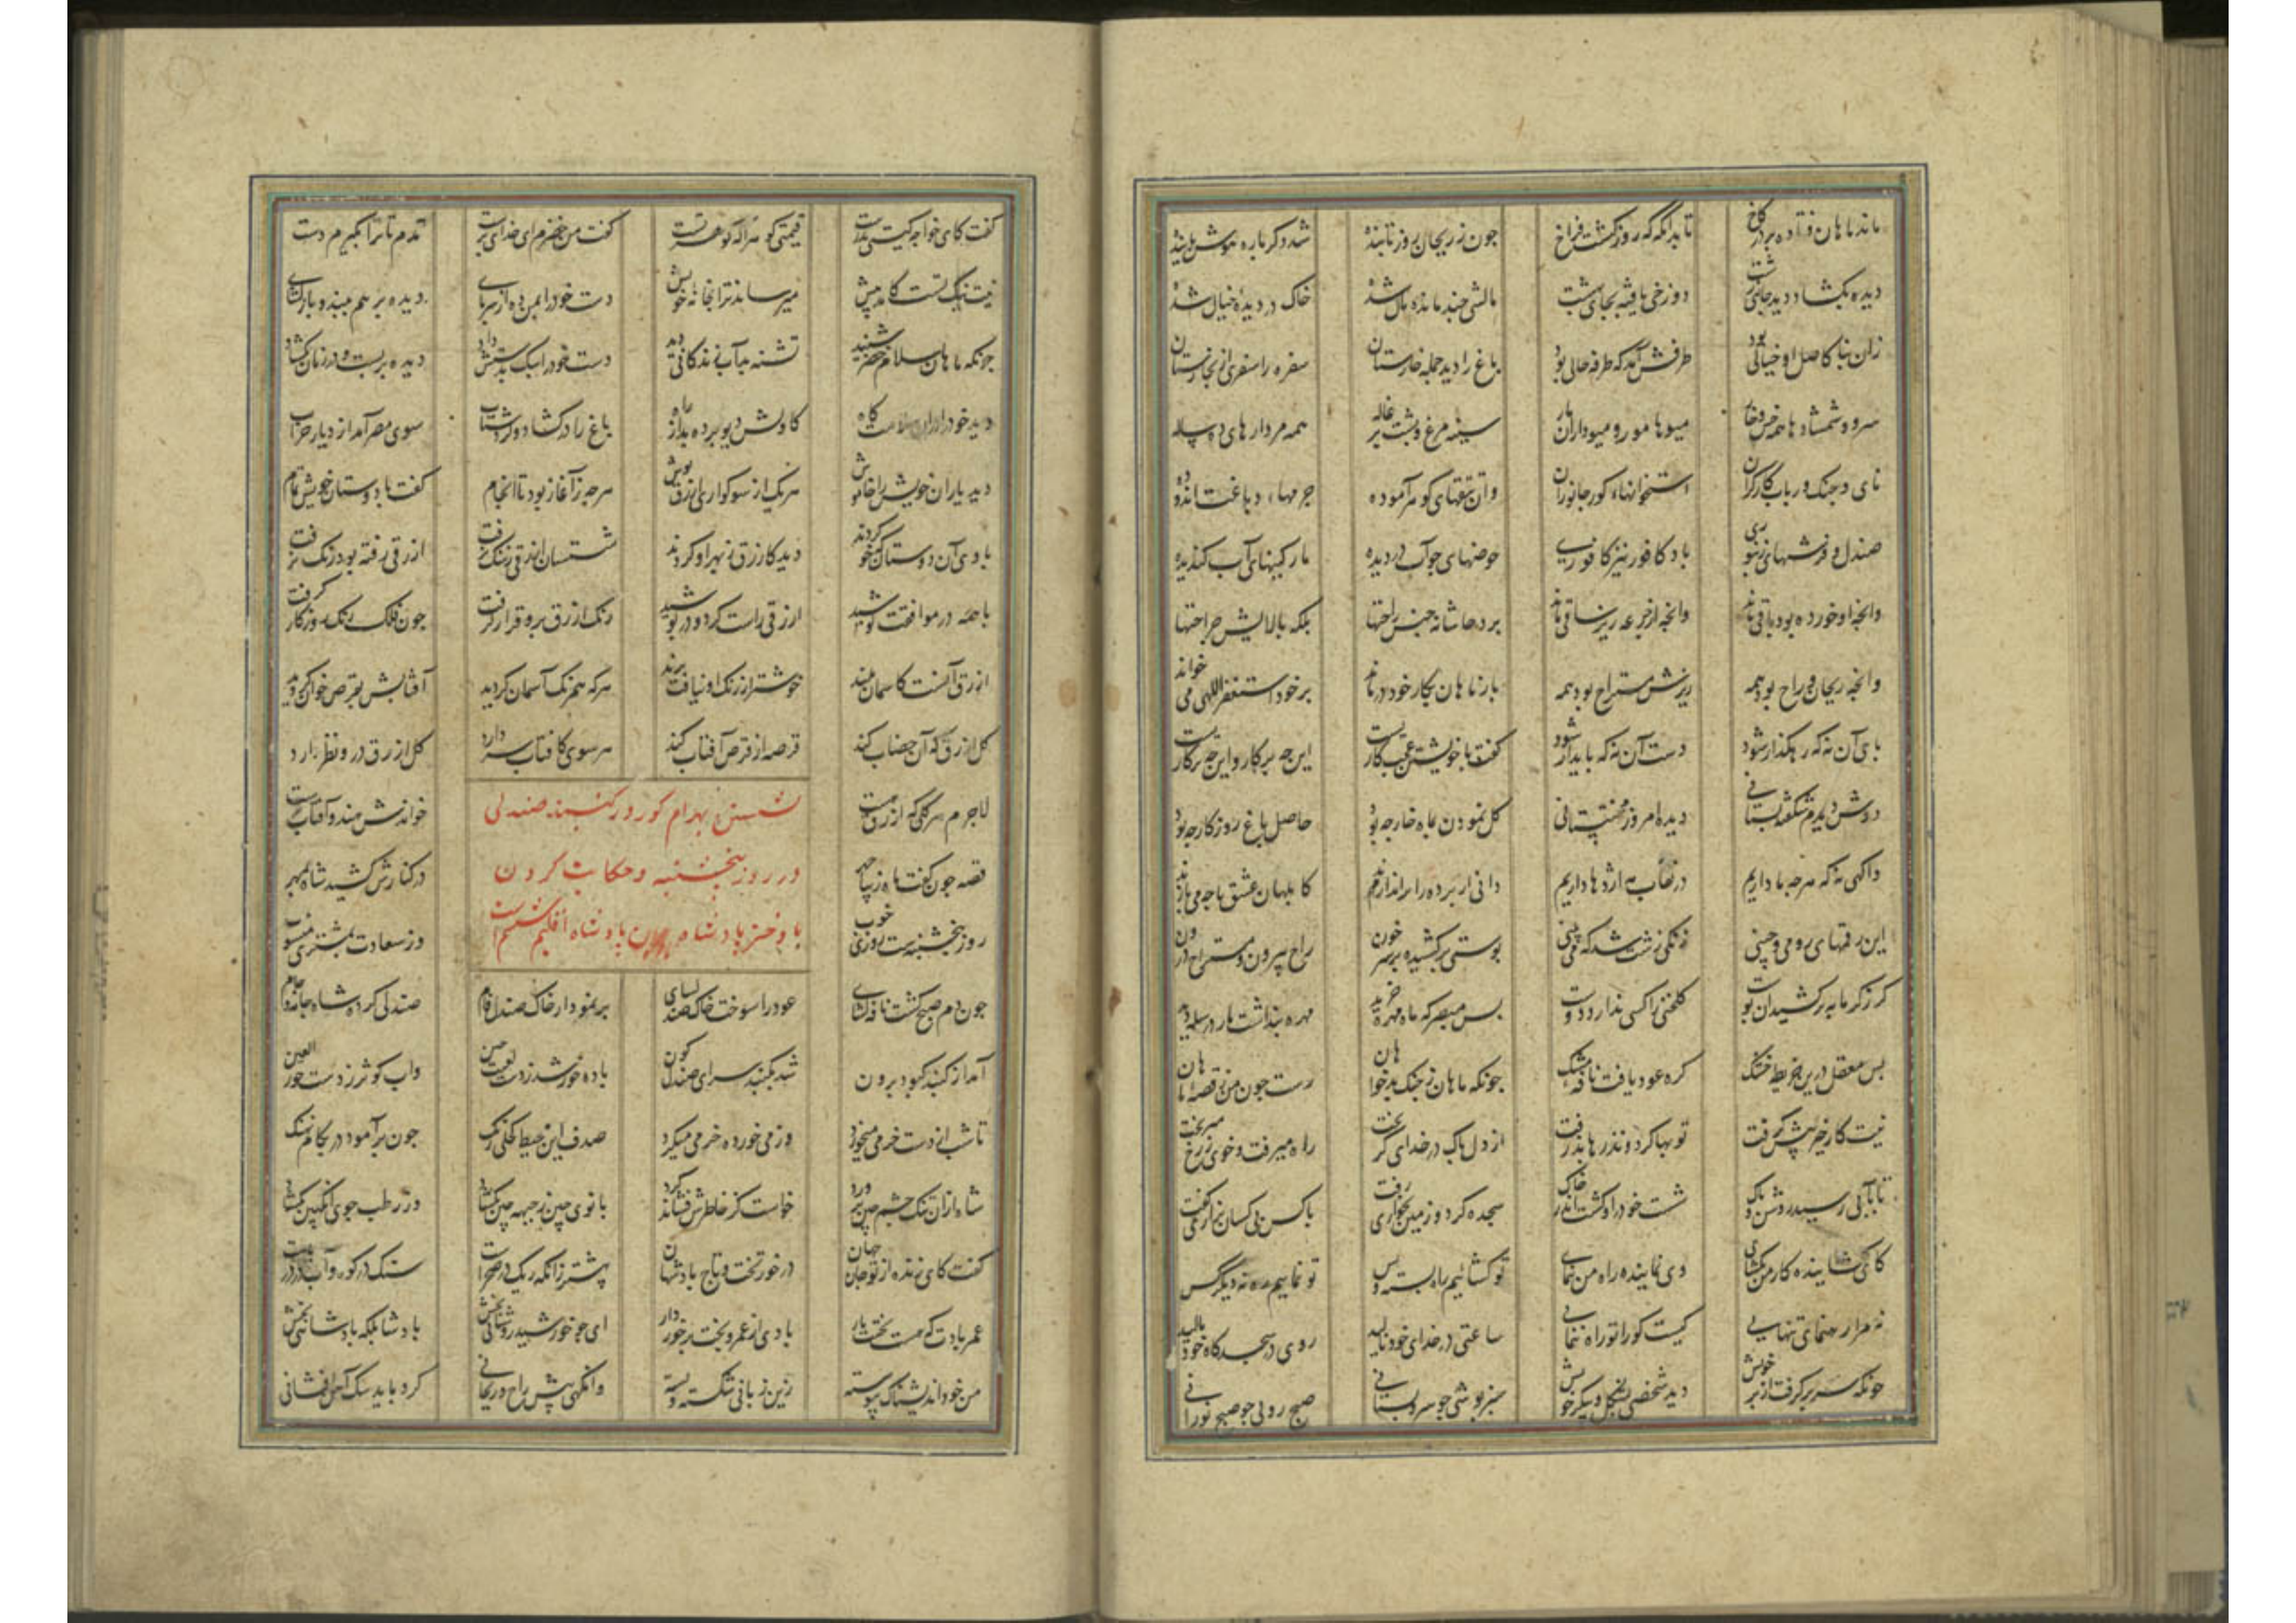 ماند ماهان فتاده بر در کاخ تا بدانگه که روز گشت فراخ چون ز ریحان روز تابنده شد دگرباره هوش یابنده
دیده بگشاد دید جای زشت دوزخی یافته بجای بهشت مالشی چند مانده مال شده خاک در دیده خیال شده
زان بنا کاصل او خیالی بود طرفش آمد که طرفه حالی بود باغ را دید جمله خارستان سفره را صفری از بخارستان
سرو و شمشادها همه خس و خار میوها مور و میوداران مار سینه مرغ و پشت بزغاله همه مردارهای ده ساله
نای و چنگ و رباب کارگران استخوانهاء کور جانوران وان تتقهای گوهر آموده چرمهاء دباغت اندوده
باد کافور نیز کافوری حوضهای چو آب در دیده پارکینهای آب گندیده
وانچه او خورده بود باقی ماند وانچه از جرعه ریز ساقی ماند بود حاشا ز جنس راحتها بلکه پالایش جراحتها
وانچه ریحان و راح بود همه ریزش مستراح بود همه باز ماهان بکار خود درماند بر خود استغفراللهی می خواند
پای آن نه که رهگذار شود دست آن نه که پایدار شود گفت با خویشتن عجب کاریست این چه پرکار و این چه پرگاریست
دوش دیدم شکفته بستانی دیدم امروز محنتستانی گل نمودن بما و خار چه بود حاصل باغ روزگار چه بود
واگهی نه که هرچه ما داریم در نقاب مه اژدها داریم دانی ار پرده را براندازند کابلهان عشق با چه می بازند
این رقمهای رومی و چینی زنگی زشت شد که می بینی پوستی برکشیده بر سر خون راح بیرون و مستراح درون
گر ز گرمابه برکشیدان پوست گلخنی را کسی ندارد دوست بس مبصر که مار مهره خرید مهره پنداشت مار در سله دید
بس مغفل درین خریطه خشک گره عود یافت نافه مشک چونکه ماهان ز چنگ بدخواهان رست چون من ز قصه ماهان
نیت کار خیر پیش گرفت توبها کرد و نذرها پذرفت از دل پاک در خدای گریخت راه میرفت و خون ز رخ میریخت
تا بآبی رسید روشن و پاک شست خود را و گشت اندر خاک سجده کرد و زمین بخواری رفت با کس بی کسان بزاری گفت
کای گشاینده کار من بگشای وی نماینده راه من بنمای تو گشائیم راه بسته و بس تو نماییم ره نه دیگر کس
نه مرا رهنمای تنهایی کیست کو را تو راه ننمایی ساعتی در خدای خود نالید روی در سجده گاه خود مالید
چونکه سر برگرفت از بر خویش دید شخصی بشکل و پیکر خویش سبز پوشی چو سرو بستانی صبح رویی چو صبح نورانی
گفت کای خواجه کیستی بدرست قیمتی گوهرا که گوهر تست گفت من خضرم ای خدای پرست آمدم تا ترا بگیرم دست
نیت نیک تست کامد پیش میرساند ترا بخانه خویش دست خود را بمن ده از سر پای دیده بر هم ببند و باز گشای
چونکه ماهان سلام خضر شنید تشنه بد آب زندگانی دید دست خود را سبک بدستش داد دیده بربست و در زمان بگشاد
دید خود را در آن سلامت گاه کاولش دیو برده بد از راه باغ را در گشاد و کرد شتاب سوی مصر آمد از دیار خراب
دید یاران خویش را خاموش هر یک از سوگواری ازرق پوش هرچه ز آغاز بود تا انجام گفت با دوستان خویش تمام
با وی آن دوستان که خو کردند دید کازرق ز بهر او کردند
با همه در موافقت کوشید ازرقی راست کرد و در پوشید رنگ ازرق برو قرار گرفت چون فلک رنگ روزگار گرفت
ازرق آنست کاسمان بلند خوشتر از رنگ او نیافت پرند هرکه همرنگ آسمان گردد آفتابش بقرص خوان گردد
گل ازرق که آن حساب کند قرصه از قرص آفتاب کند هر سوی کافتاب سر دارد گل ازرق درو نظر دارد
لاجرم هر گلی که ازرق هست خواندش هندو آفتاب پرست
قصه چون گفت ماه زیبا چهر در کنارش کشید شاه بمهر
نشستن بهرام کور در گنبد صندلی
در روز پنجشنبه و حکایت کردن
با دختر پادشاه پادشاه اقلیم ششم
روز پنجشنبه است روزی خوب وز سعادت بمشتری منسوب
چون دم صبح گشت نافه گشای عود را سوخت خاک صندل سای بر نمودار خاک صندل فام صندلی کرد شاه جامه و جام
آمد از گنبد کبود برون شد بگنبد سرای صندل گون باده خور شد ز دست لعبت چین واب کوثر ز دست حور العین
تا شب از دست خرمی میخورد وز می خورده خرمی میکرد صدف این محیط کحلی رنگ چون برآمود در بکام نهنگ
شاه از آن تنگ چشم چین پرورد خواست کز خاطرش فشاند گرد بانوی چین ز چهره چین بگشاد وز رطب جوی انگبین بگشاد
گفت کای زنده از تو جان جهان در خور تخت و تاج پادشهان پیشتر زانکه ریگ در صحراست سنگ در کوه و آب در دریاست
عمر بادت که هست بختت یار بادی از عمر و بخت برخوردار ای چو خورشید روشنائی بخش پادشا بلکه پادشائی بخش
من خود اندیشناک پیوسته زین زبانی شکسته و بسته وانگهی پیش راح ریحانی کرد باید سنگ افشانی